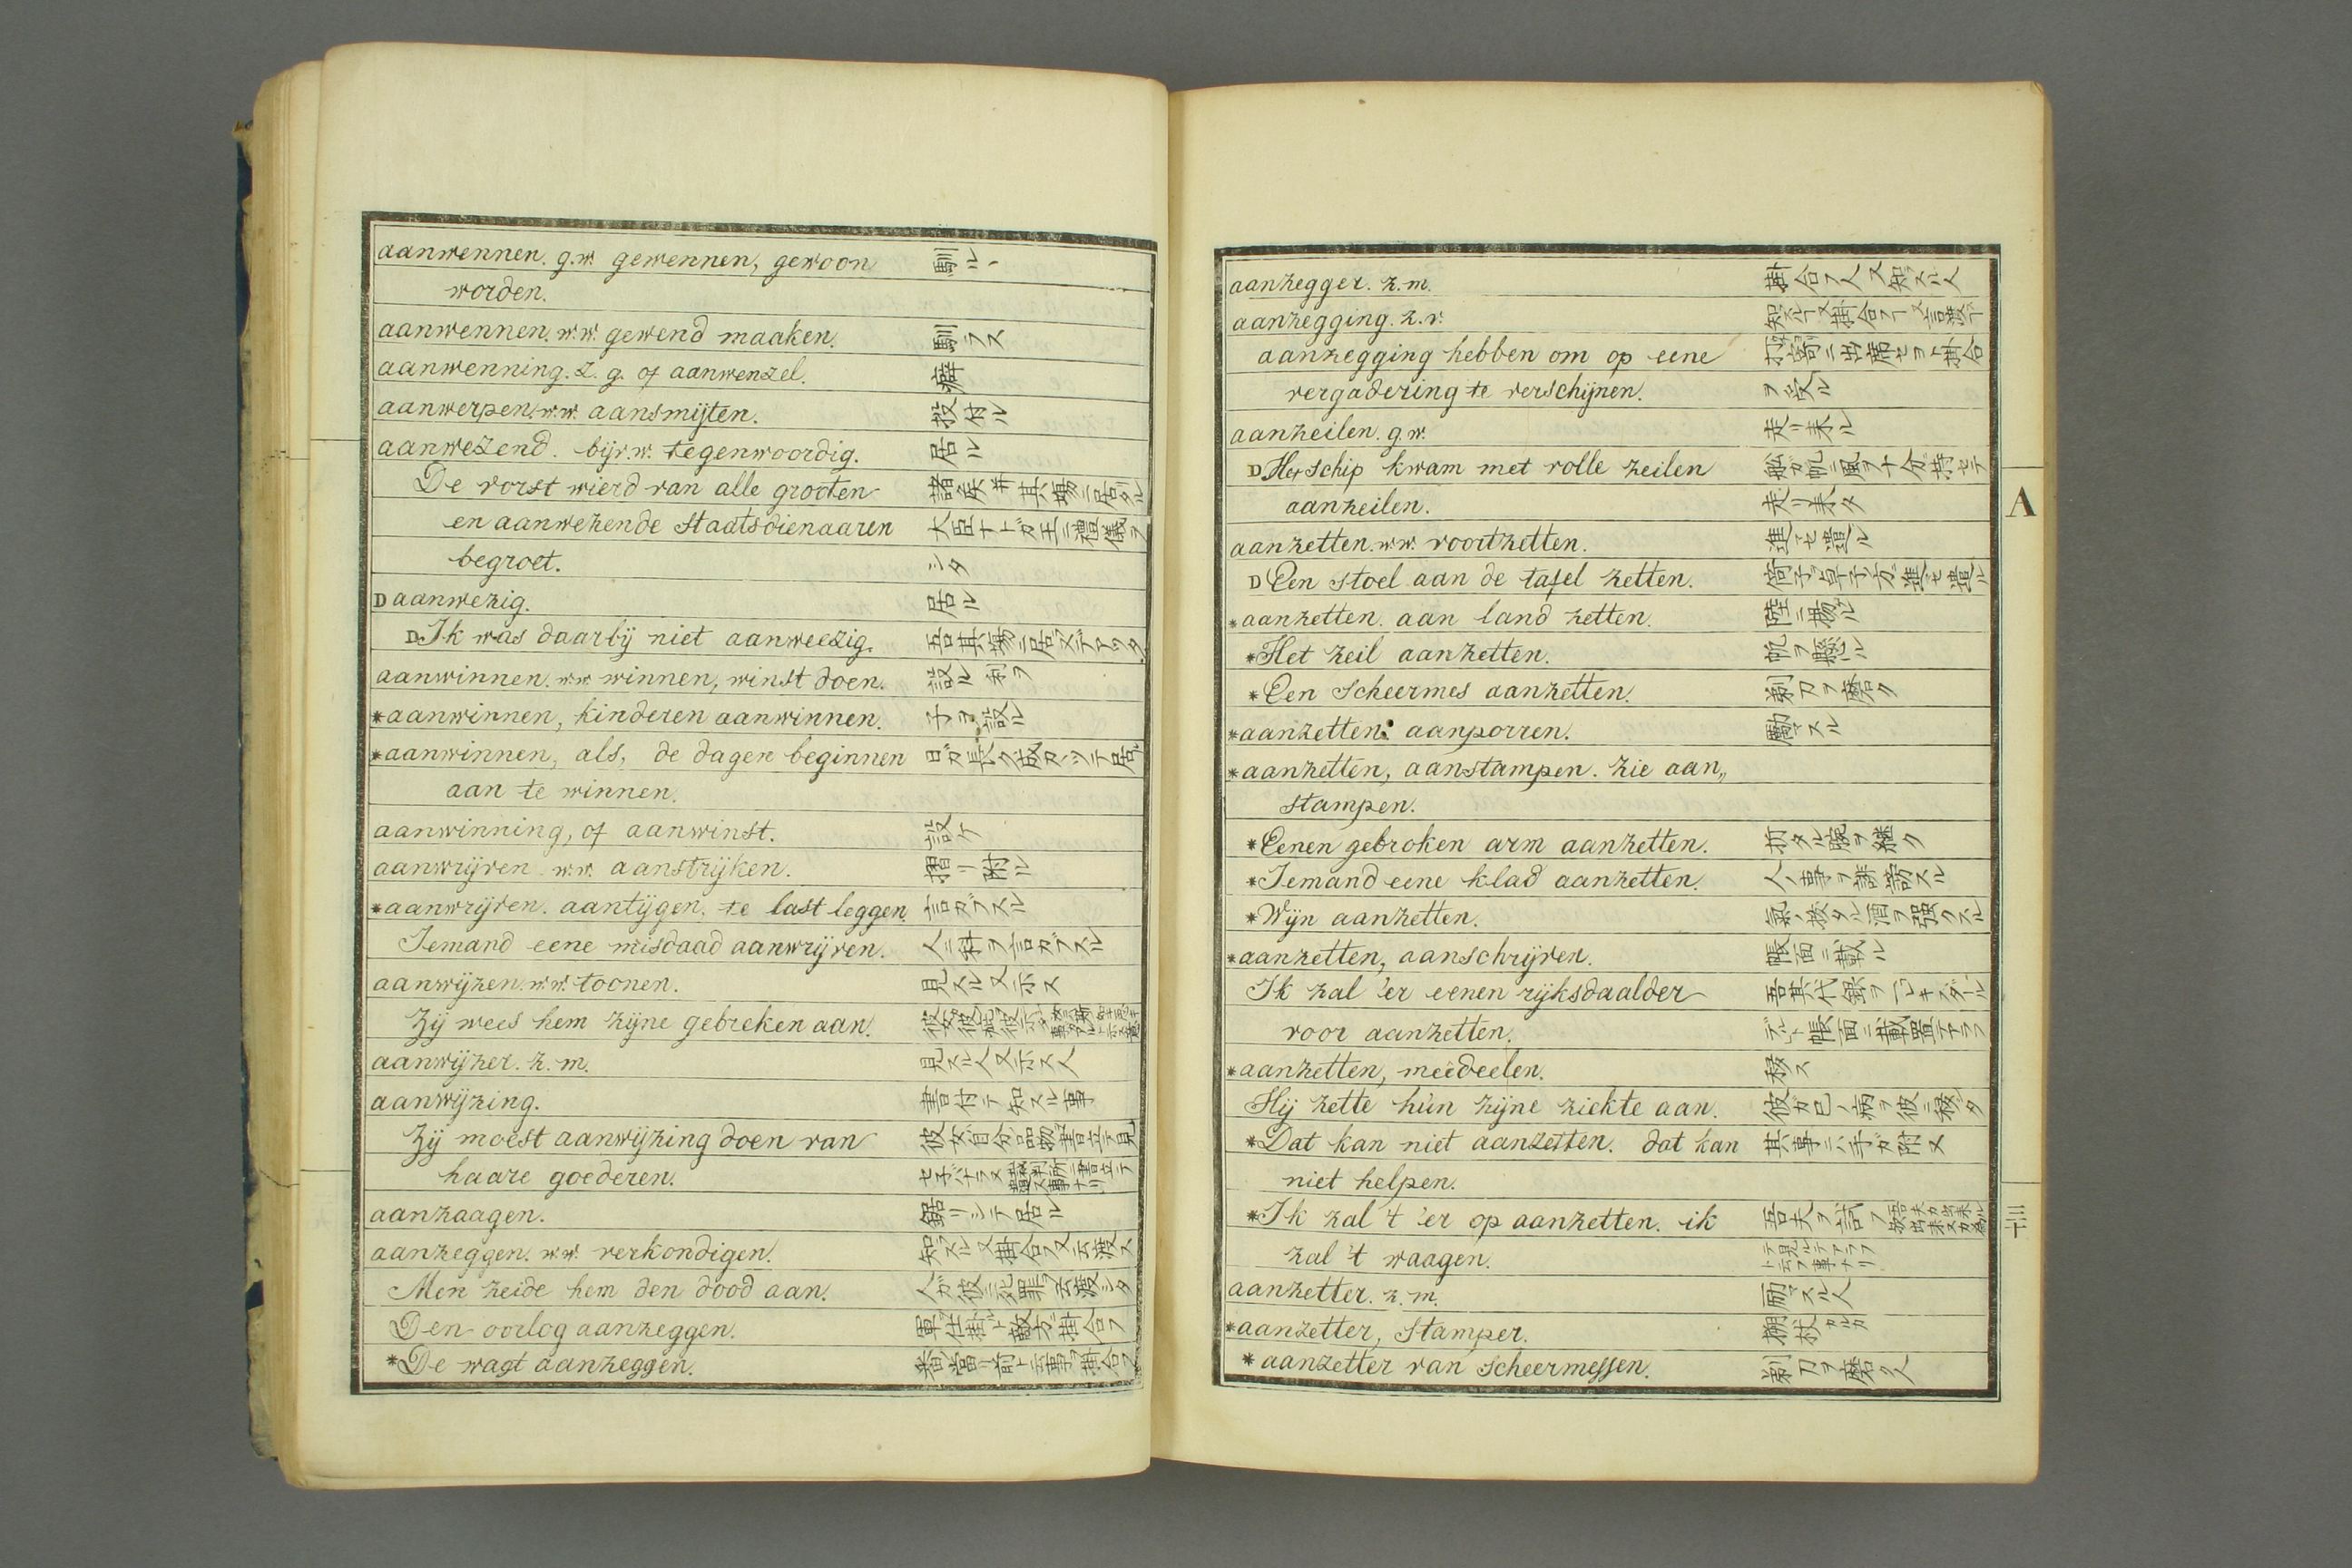 aanwennen. g.w. gewennen, gewoon 馴ル丶
worden.
aanwennen. w.w. gewend maaken. 馴ラス
aanwenning. z. g. of aanwenzel. 癖
aanwerpen. w.w. aansmijten. 投付ル
aanwezend. bijv.w. tegenwoordig. 居ル
De vorst wierd van alle grooten 諸矦并其場ニ居タル
en aanwezende staatsdienaaren 大臣ナドガ王ニ禮儀ヲ
begroet. シタ
D aanwezig. 居ル
D Ik was daarbij niet aanweezig. 吾其場ニ居ズデアツタ
aanwinnen. w.w. winnen, winst doen. 設ル 利ヲ
*aanwinnen, kinderen aanwinnen. 子ヲ設ル
*aanwinnen, als, de dagen beginnen 日ガ長ク成カヽツテ居ル
aan te winnen.
aanwinning, of aanwinst. 設ケ
aanwrijven w.w. aanstrijken. 摺リ附ル
*aanwrijven. aantijgen. te last leggen. 言カブスル
Iemand eene misdaad aanwrijven. 人ニ科ヲ言カブスル
aanwijzen. w.w. toonen. 見スル又示ス
Zij wees hem zijne gebreken aan.
aanwijzer. z. m. 見スル人又示ス人
aanwijzing. 書付テ知スル事
Zij moest aanwijzing doen van 彼女自分ノ品物ヲ書立テ見
haare goederen. セ子バナラヌ
aanzaagen. 鋸リシテ居ル
aanzeggen. w.w. verkondigen. 知スル又掛合フ又云渡ス
Men zeide hem den dood aan. 人ガ彼ニ死罪ヲ云渡シタ
Den oorlog aanzeggen. 軍仕掛ルト敵方ニ掛合フ
*De wagt aanzeggen. 番當リ前ト云事ヲ掛合フ
aanzegger. z.m. 掛合フ人又知スル人
aanzegging. z.v. 知スルヿ又掛合フヿ又言渡スヿ
aanzegging hebben om op eene 打寄ニ出席セヨト掛合
vergadering te verschijnen. ヲ受ル
aanzeilen. g.w. 走リ来ル
D Het schip kwam met volle zeilen 舩ガ帆ニ風ヲ十分持セテ
aanzeilen. 走リ来タ
A
aanzetten. w.w. voortzetten. 進セ遣ル
D Een stoel aan de tafel zetten. 倚子ヲ卓子ノ方ニ進セ遣ル
*aanzetten. aan land zetten. 陸ニ揚ル
*Het zeil aanzetten. 帆ヲ懸ル
*Een scheermes aanzetten. 剃刀ヲ磨ク
*aanzetten. aanporren. 勵マスル
*aanzetten, aanstampen. zie aan„
stampen.
*Eenen gebroken arm aanzetten. 折タル腕ヲ継ク
*Iemand eene klad aanzetten. 人ノ事ヲ誹謗スル
*Wijn aanzetten. 氣ノ抜タル酒ヲ強クスル
*aanzetten, aanschrijven. 帳面ニ載ル
Ik zal 'er eenen rijksdaalder 吾其代銀ヲ一レキスダール
voor aanzetten. デルト帳面ニ載置テアラフ
*aanzetten, meêdeelen. 移ス
Hij zette hun zijne ziekte aan. 彼ガ己ノ病ヲ彼ニ移シタ
*Dat kan niet aanzetten. dat kan 其事ニハ手ガ附ヌ
niet helpen.
*Ik zal 't 'er op aanzetten. ik 吾夫ヲ試フ
zal 't waagen. テ見ルテアラフト云フ事ナリ
三十
aanzetter. z. m. 励マスル人
*aanzetter, stamper. 搠杖 カルカ
*aanzetter van scheermessen. 剃刀ヲ磨ク人